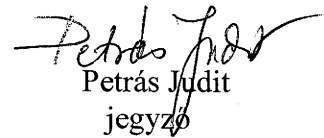 Petrás Judit
Petrás Judit
jegyző